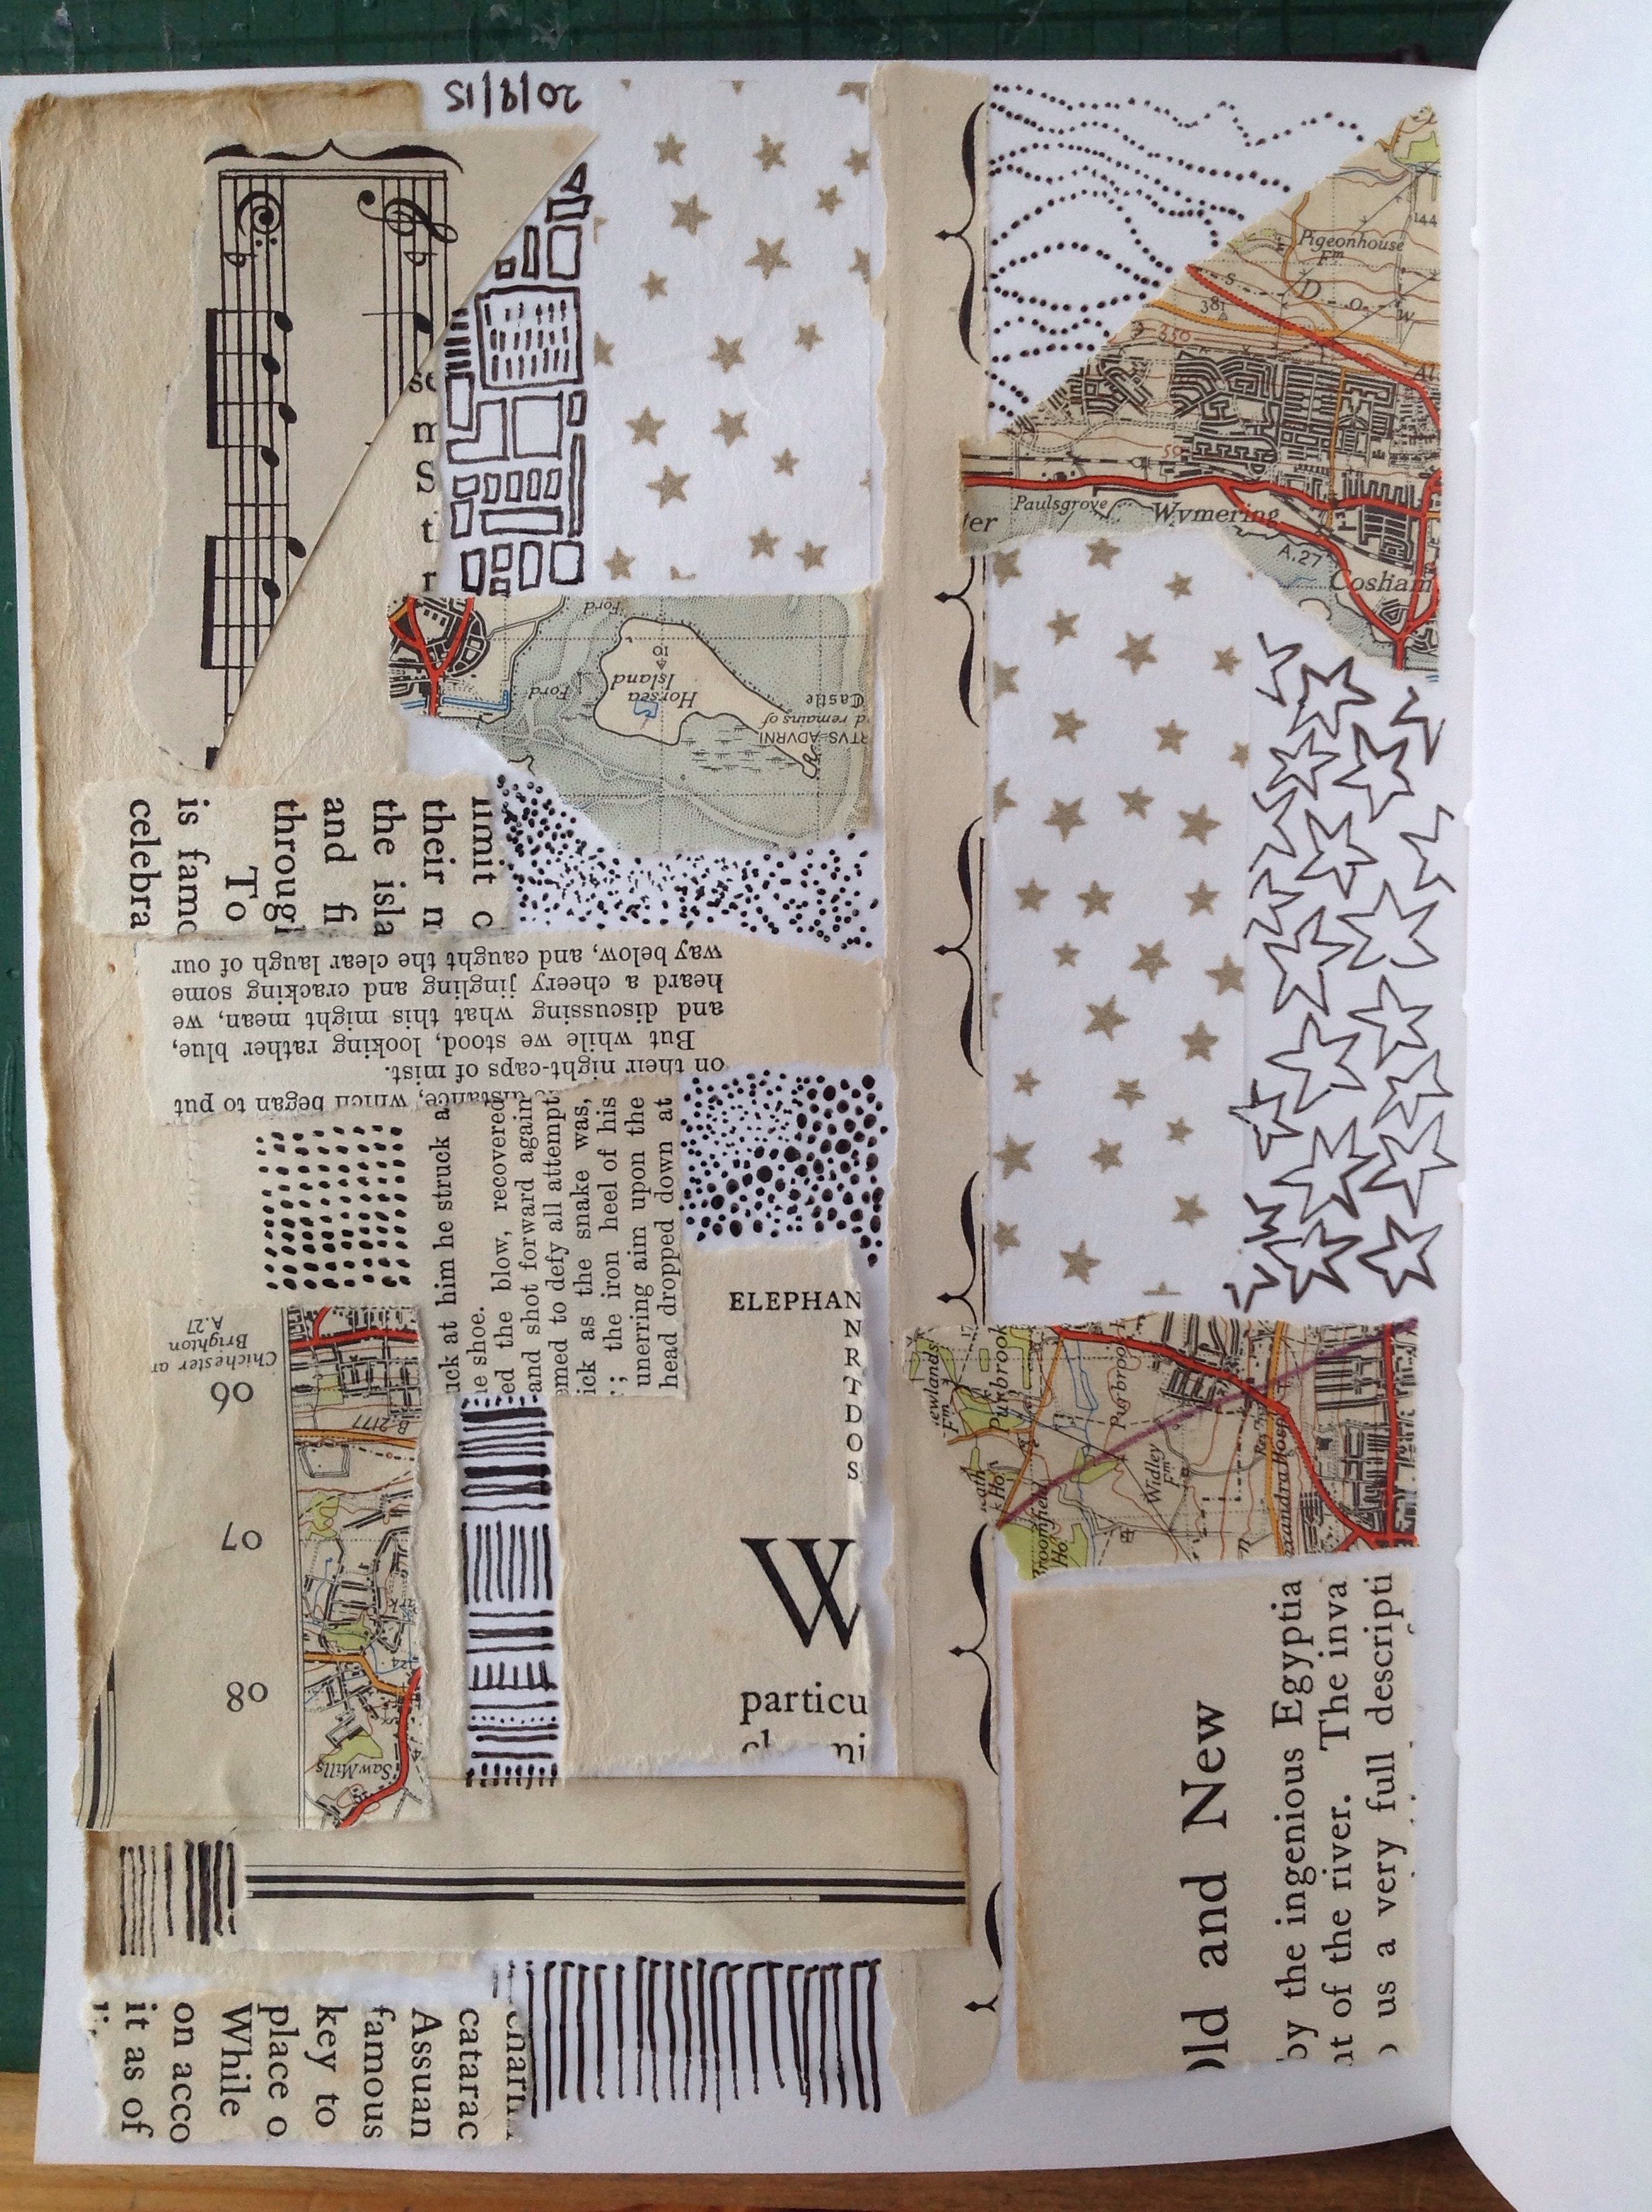 20/9/15
Pigeonhouse
Fm
144
S
D
O
W
381
350
50
Paulsgrove
Wymering
A.27
Cosham
m
S
t
r
Ford
10
Horsea
Island
Ford
Castle
d remains of
RTVS ADVRNI
their
the isla
and fi
through
To
is famo
celebra
way below, and caught the clear laugh of our
heard a cheery jingling and cracking some
and discussing what this might mean, we
But while we stood, looking rather blue,
on their night-caps of mist.
distance, which began to put
uck at him he struck a
he shoe.
ed the blow, recovered
and shot forward again
emed to defy all attempt
ick as the snake was,
; the iron heel of his
unerring aim upon the
head dropped down at
ELEPHAN
N
R
D
O
S
W
particu
Chichester an
Brighton
A.27
06
07
08
B 2177
Saw Mills
ewlands
Fm
Purbrook
Purbrook
Widley
Fm
Ho
roomfield
Ho
ld and New
by the ingenious Egyptia
nt of the river. The inva
us a very full descripti
charm
catarac
Assuan
famous
key to
place o
While
on acco
it as of